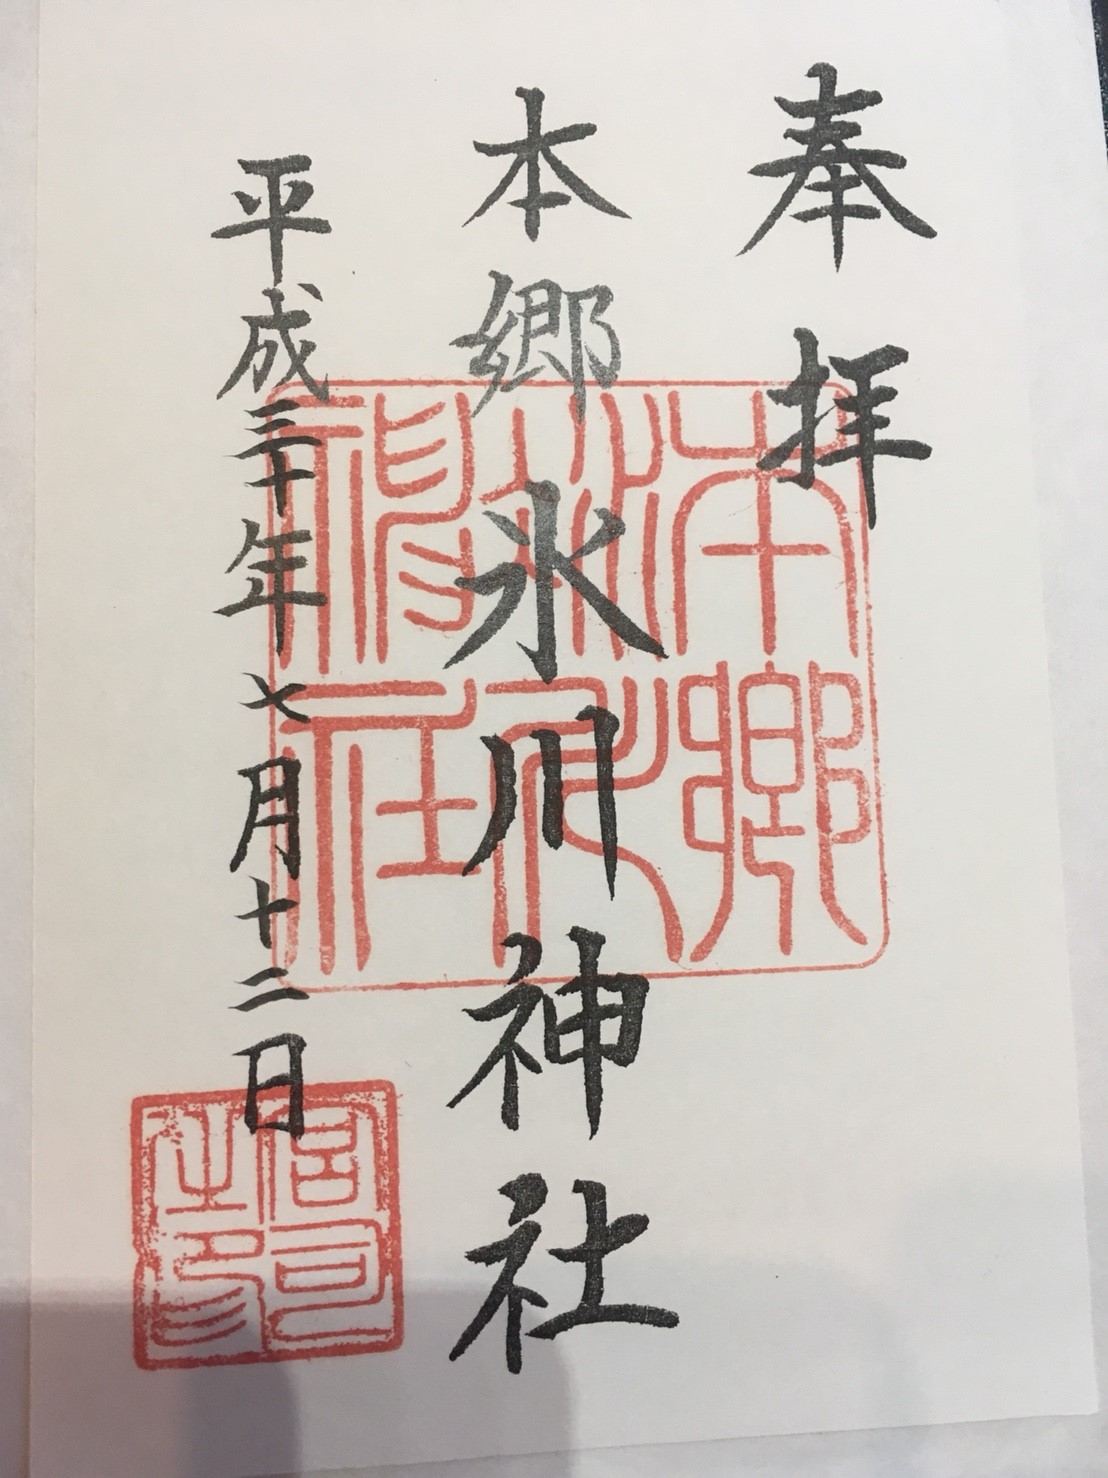 奉拝
本郷氷川神社
平成三十年七月十二日
本郷
氷川
神社
宮司之印